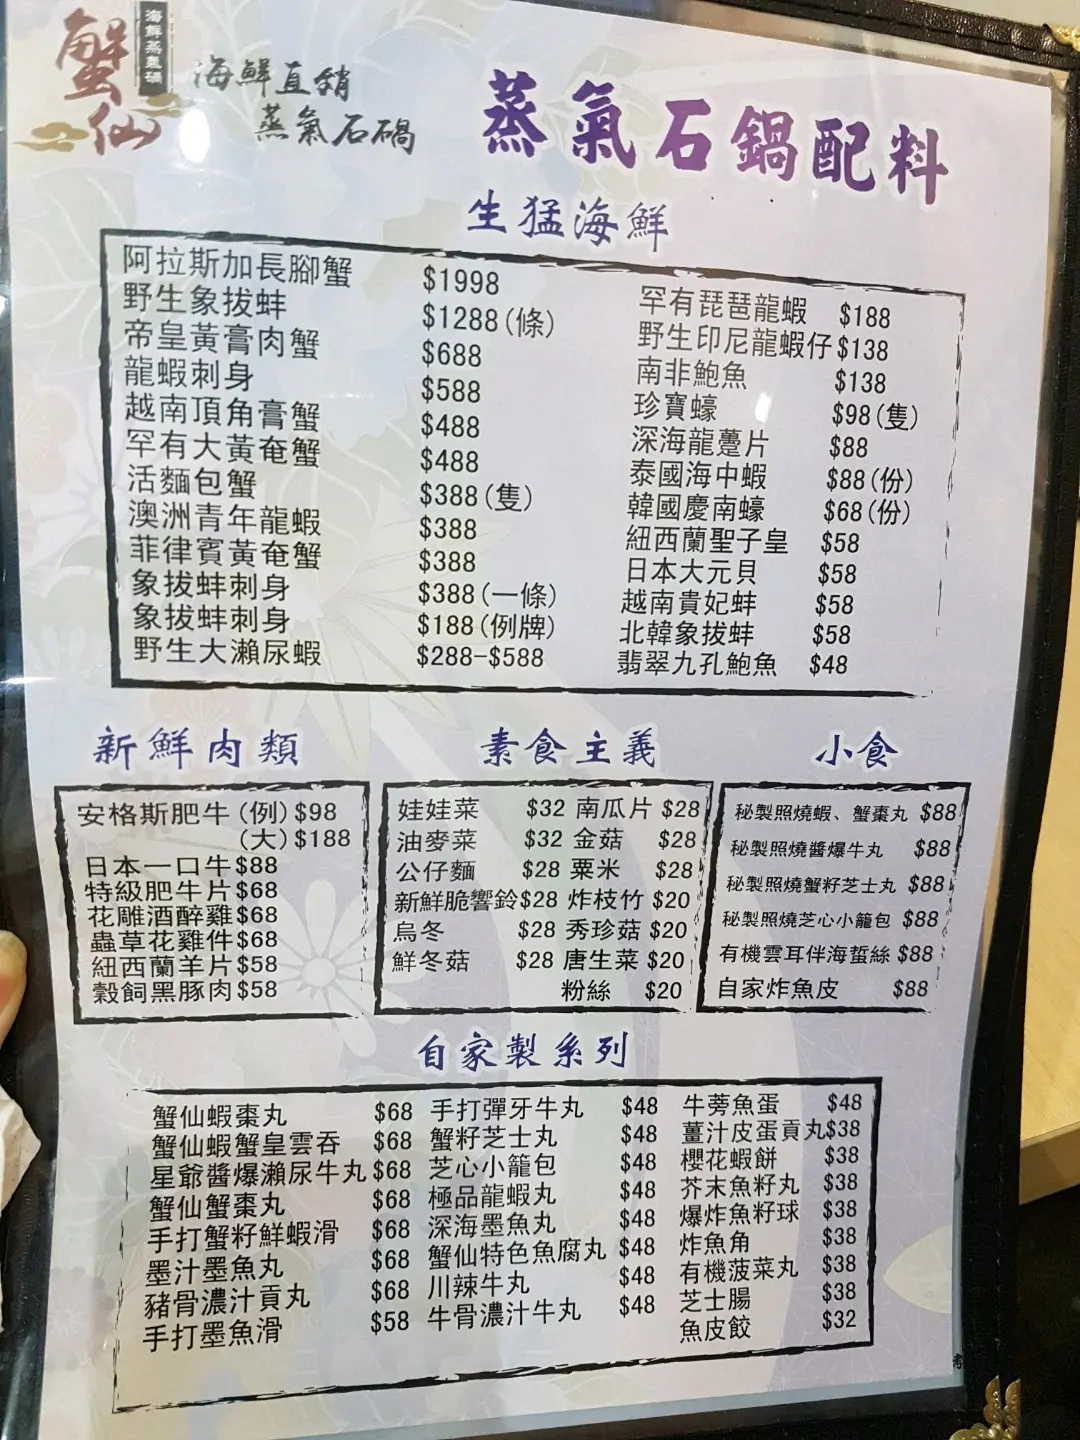 蟹仙
海鮮蒸氣鍋
海鮮直銷
蒸氣石鍋
蒸氣石鍋配料
生猛海鮮
阿拉斯加長腳蟹 $1998
野生象拔蚌 $1288(條)
帝皇黃膏肉蟹 $688
龍蝦刺身 $588
越南頂角膏蟹 $488
罕有大黃奄蟹 $488
活麵包蟹 $388(隻)
澳洲青年龍蝦 $388
菲律賓黃奄蟹 $388
象拔蚌刺身 $388(一條)
象拔蚌刺身 $188(例牌)
野生大瀨尿蝦 $288-$588
罕有琵琶龍蝦 $188
野生印尼龍蝦仔 $138
南非鮑魚 $138
珍寶蠔 $98(隻)
深海龍躉片 $88
泰國海中蝦 $88(份)
韓國慶南蠔 $68(份)
紐西蘭聖子皇 $58
日本大元貝 $58
越南貴妃蚌 $58
北韓象拔蚌 $58
翡翠九孔鮑魚 $48
新鮮肉類
安格斯肥牛(例)$98
(大)$188
日本一口牛$88
特級肥牛片$68
花雕酒醉雞$68
蟲草花雞件$68
紐西蘭羊片$58
穀飼黑豚肉$58
素食主義
娃娃菜 $32 南瓜片 $28
油麥菜 $32 金菇 $28
公仔麵 $28 粟米 $28
新鮮脆響鈴$28 炸枝竹 $20
烏冬 $28 秀珍菇 $20
鮮冬菇 $28 唐生菜 $20
粉絲 $20
小食
秘製照燒蝦、蟹棗丸 $88
秘製照燒醬爆牛丸 $88
秘製照燒蟹籽芝士丸 $88
秘製照燒芝心小籠包 $88
有機雲耳伴海蜇絲 $88
自家炸魚皮 $88
自家製系列
蟹仙蝦棗丸 $68
蟹仙蝦蟹皇雲吞 $68
星爺醬爆瀨尿牛丸 $68
蟹仙蟹棗丸 $68
手打蟹籽鮮蝦滑 $68
墨汁墨魚丸 $68
豬骨濃汁貢丸 $68
手打墨魚滑 $58
手打彈牙牛丸 $48
蟹籽芝士丸 $48
芝心小籠包 $48
極品龍蝦丸 $48
深海墨魚丸 $48
蟹仙特色魚腐丸 $48
川辣牛丸 $48
牛骨濃汁牛丸 $48
牛蒡魚蛋 $48
薑汁皮蛋貢丸$38
櫻花蝦餅 $38
芥末魚籽丸 $38
爆炸魚籽球 $38
炸魚角 $38
有機菠菜丸 $38
芝士腸 $38
魚皮餃 $32